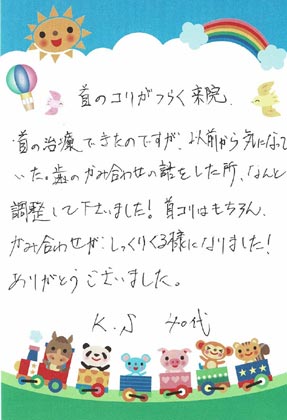 首のコリがつらく来院.
首の治療できたのですが、以前から気になって
いた。歯のかみ合わせの話をした所、なんと
調整して下さいました！首コリはもちろん、
かみ合わせが、しっくりくる様になりました！
ありがとうございました。
K.S 30代